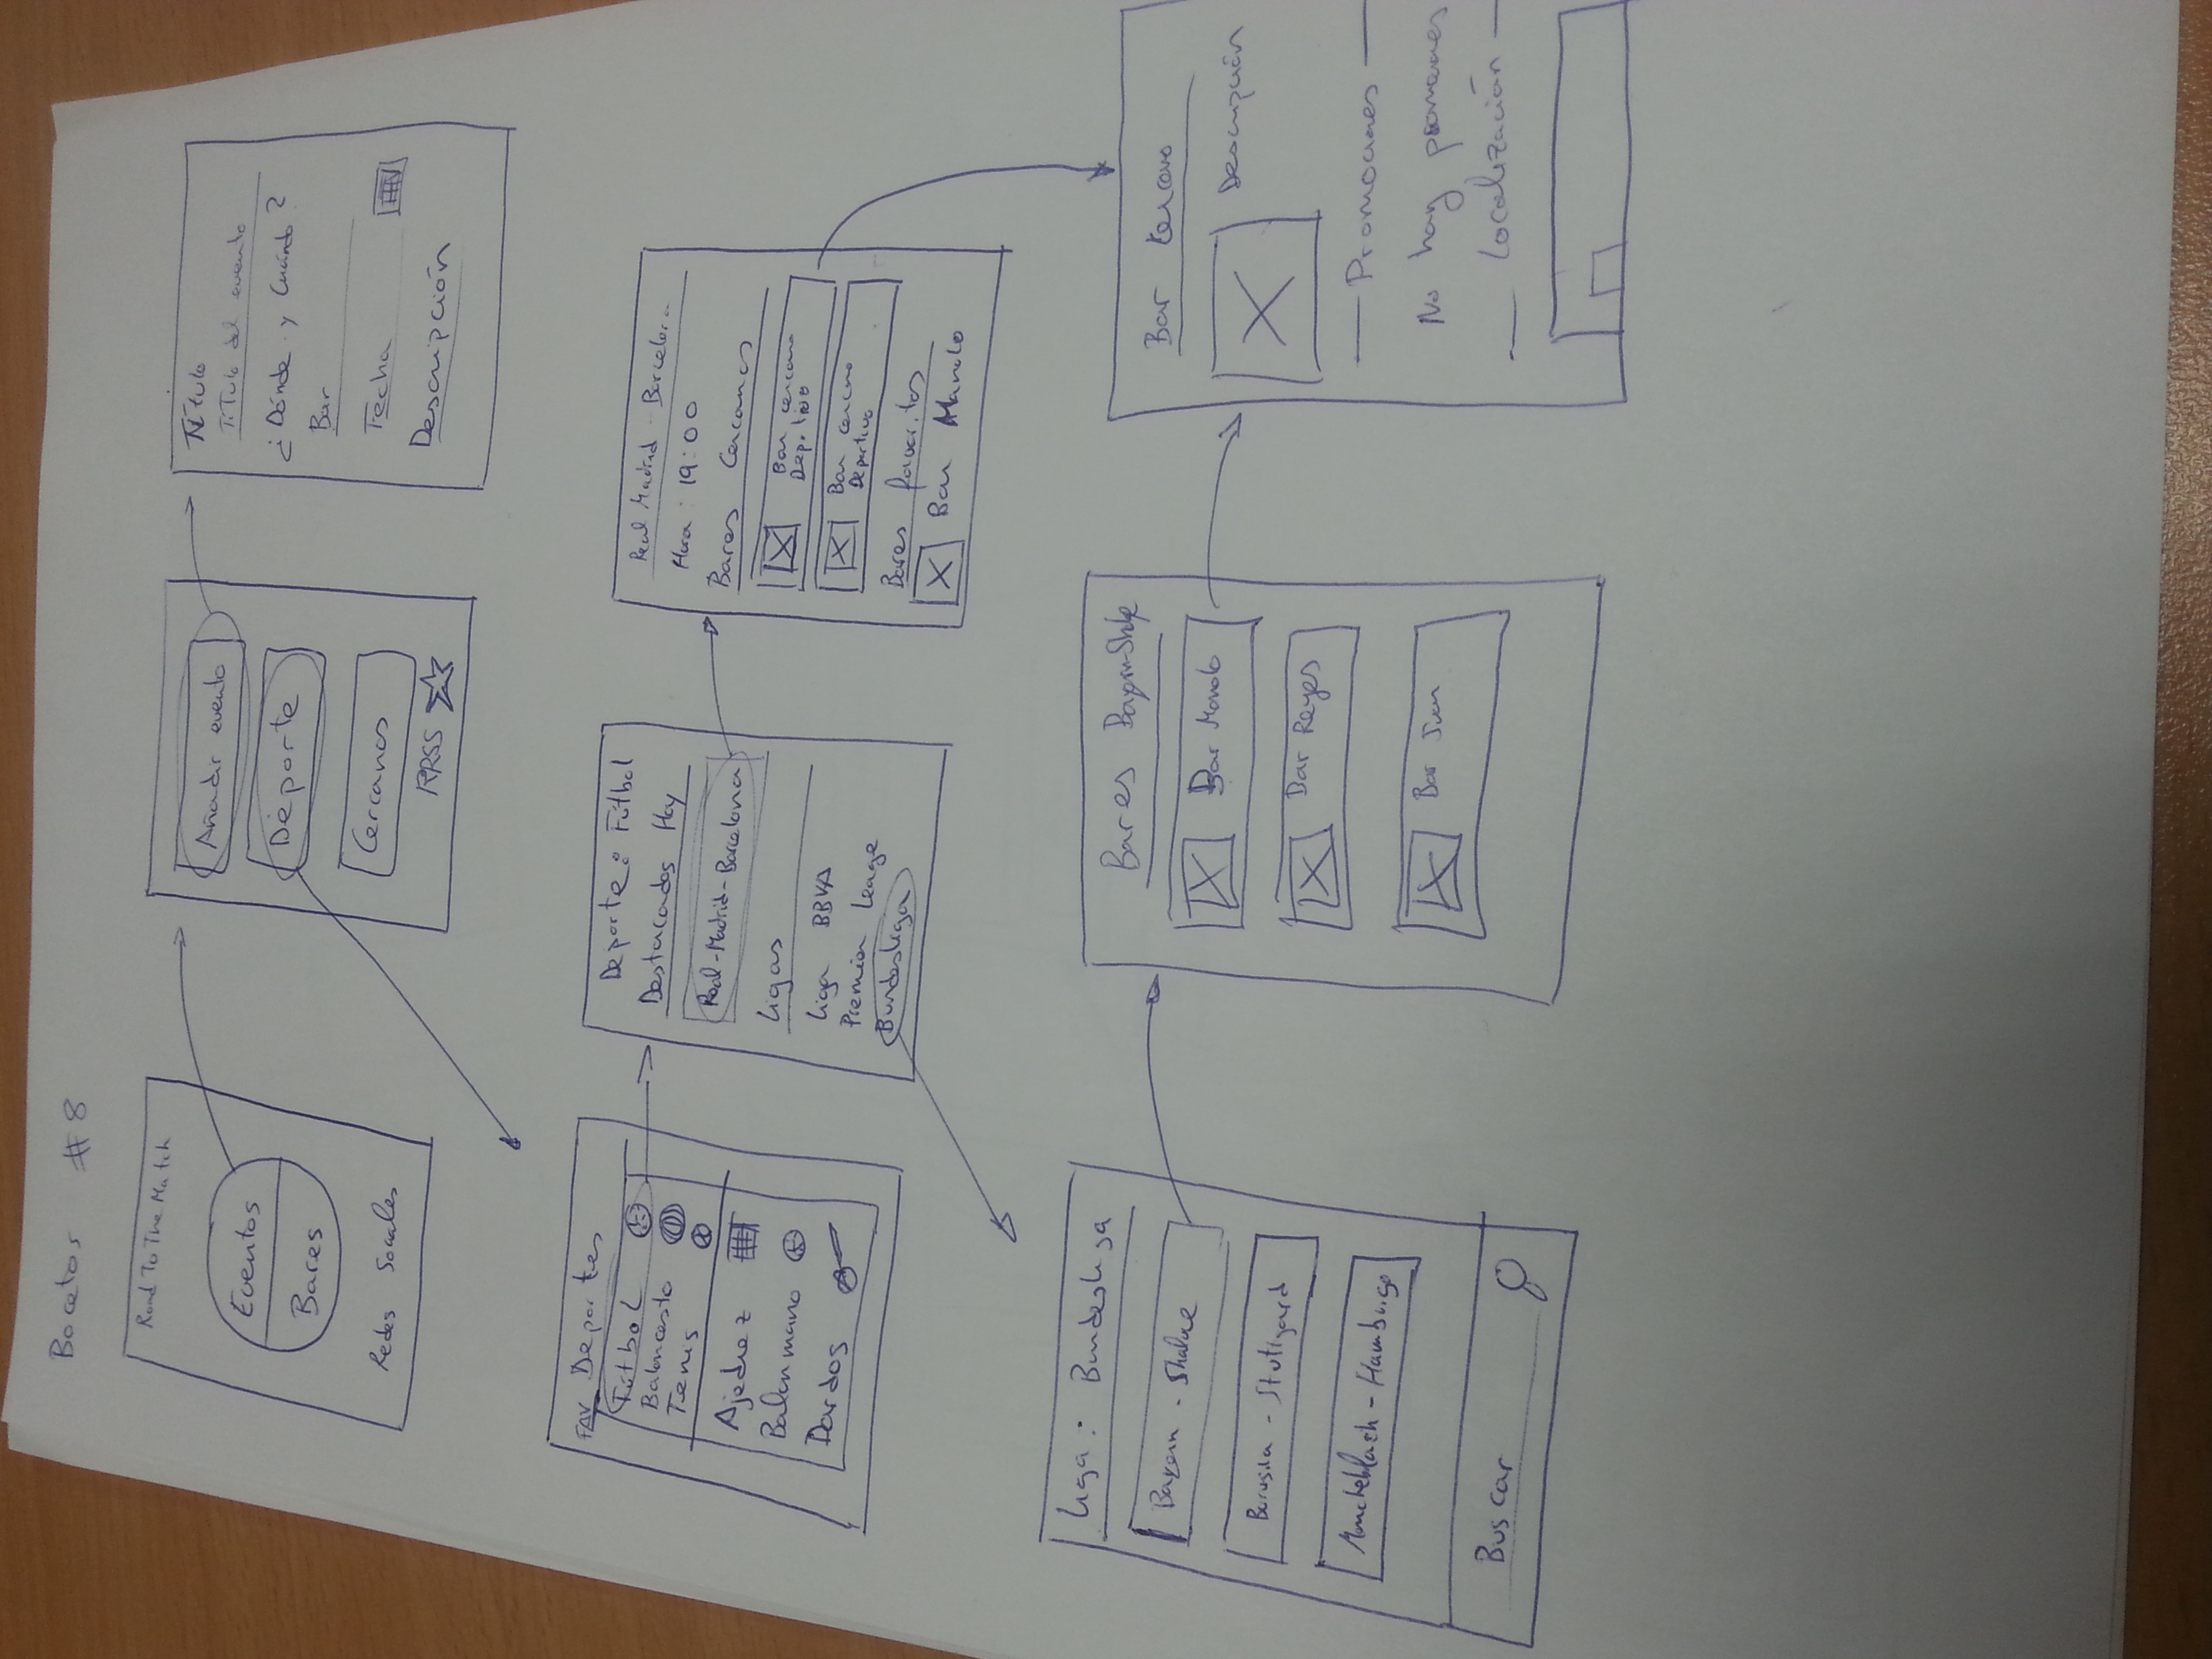 Bocetos #8
Road To The Match
Eventos
Bares
Redes Sociales
Añadir evento
Deporte
Cercanos
RRSS
Título
Título del evento
¿Dónde y Cuándo?
Bar
Fecha
Descripción
FAV Deportes
Fútbol
Baloncesto
Tenis
Ajedrez
Balonmano
Dardos
Deporte: Fútbol
Destacados Hoy
Real-Madrid-Barcelona
Ligas
Liga BBVA
Premier Leage
Bundesliga
Real Madrid - Barcelona
Hora: 19:00
Bares Cercanos
Bar cercano
Deportivo
Bar cercano
Deportivo
Bares favoritos
Bar Manolo
Liga: Bundesliga
Bayern - Shalke
Borusia - Stutigard
- Hamburgo
Buscar
Bares Bayern-Shalke
Bar Manolo
Bar Reyes
Bar Juan
Bar Cercano
Descripción
Promociones
No hay promociones
Localización